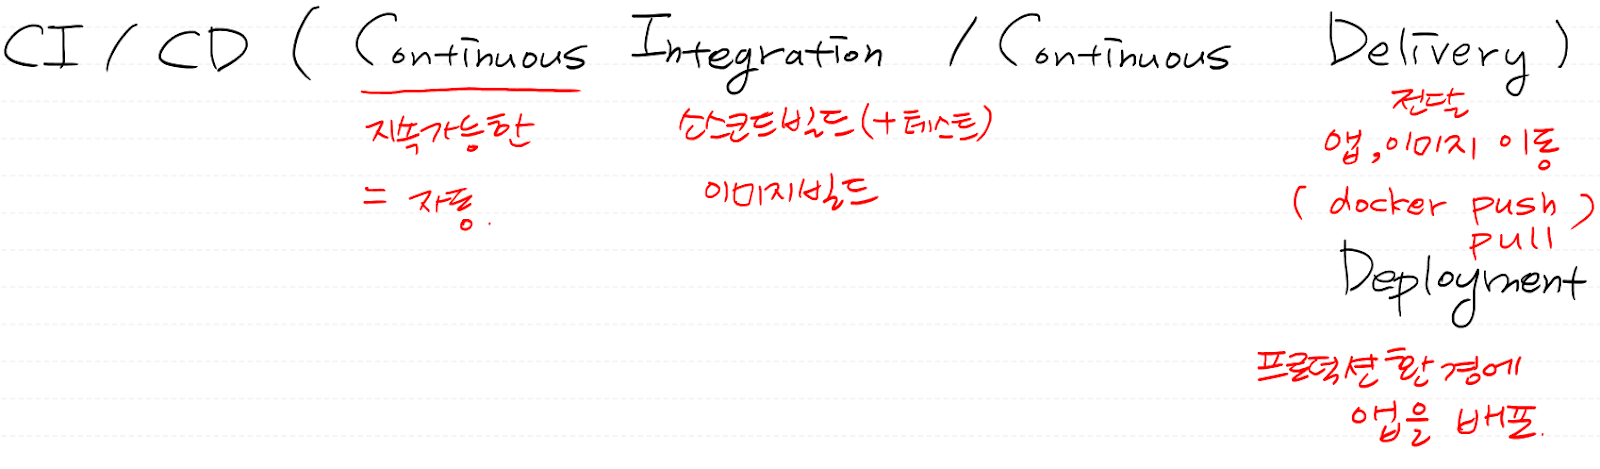 CI / CD ( Continuous Integration / Continuous Delivery )
지속가능한
= 자동.
소스코드빌드(+테스트)
이미지빌드
전달
앱,이미지 이동
( docker push )
pull
Deployment
프로덕션환경에
앱을 배포.